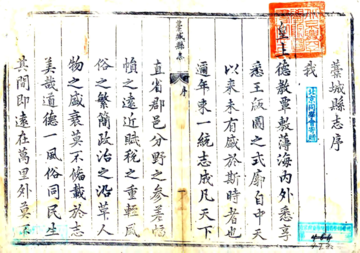 藁城縣志序
我
皇上德敷票敷薄海内外悉享
悉王版圖之式廓自中天
以來未有盛於斯時者也
邇年來一統志成凡天下
藁城縣志
序
直省郡邑分野之參差幅
幀之遠近賦税之重輕風
俗之繁簡政治之沿革人
物之盛衰莫不備載於志
美哉道德一風俗同民生
其間即遠在萬里外莫不